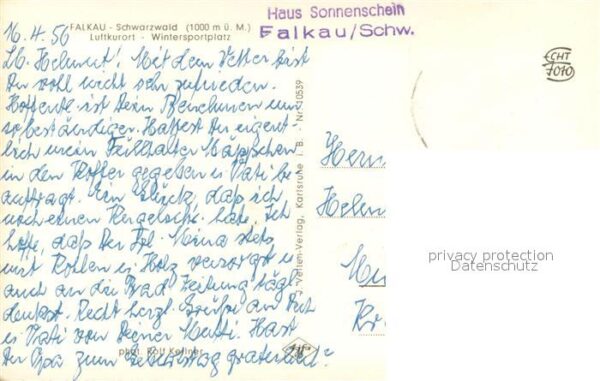 FALKAU - Schwarzwald (1000 m ü. M.)
Luftkurort - Wintersportplatz
Haus Sonnenschein
Falkau/Schw.
ECHT
FOTO
16.4.56
Lb. Helmut! Mit dem Wetter bist
Du wohl nicht sehr zufrieden.
Hoffentl. ist Dein Benehmen um
so beständiger. Hattest Du eigent-
lich mein Füllhalter Mäppchen
in den Koffer gegeben u. Vati be-
auftragt. Ein Glück, daß ich
noch einen habe. Ich
hoffe, daß Du Frl. Mina stets
mit Kohlen u. Holz versorgst u.
auch an die Bad. Zeitung tägl.
denkst. Recht herzl. Grüße an Dich
u. Vati von Deiner Mutti. Hast
Du Opa zum Geburtstag gratuliert?
phot. Rolf Kellner
Agfa
J. Velten-Verlag, Karlsruhe i. B. - Nr. 10539
Herrn
Helm
privacy protection
Datenschutz